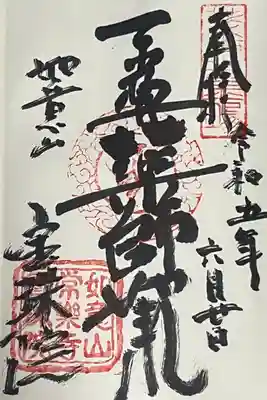 奉拝
令和五年
六月廿日
薬師
如意山
宝珠院
如意山
常樂寺